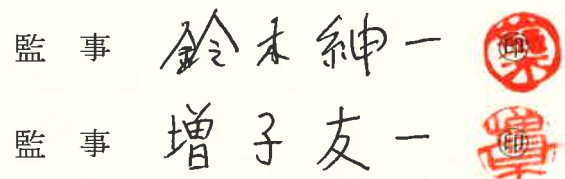 監事 鈴木紳一 ㊞
監事 増子友一 ㊞